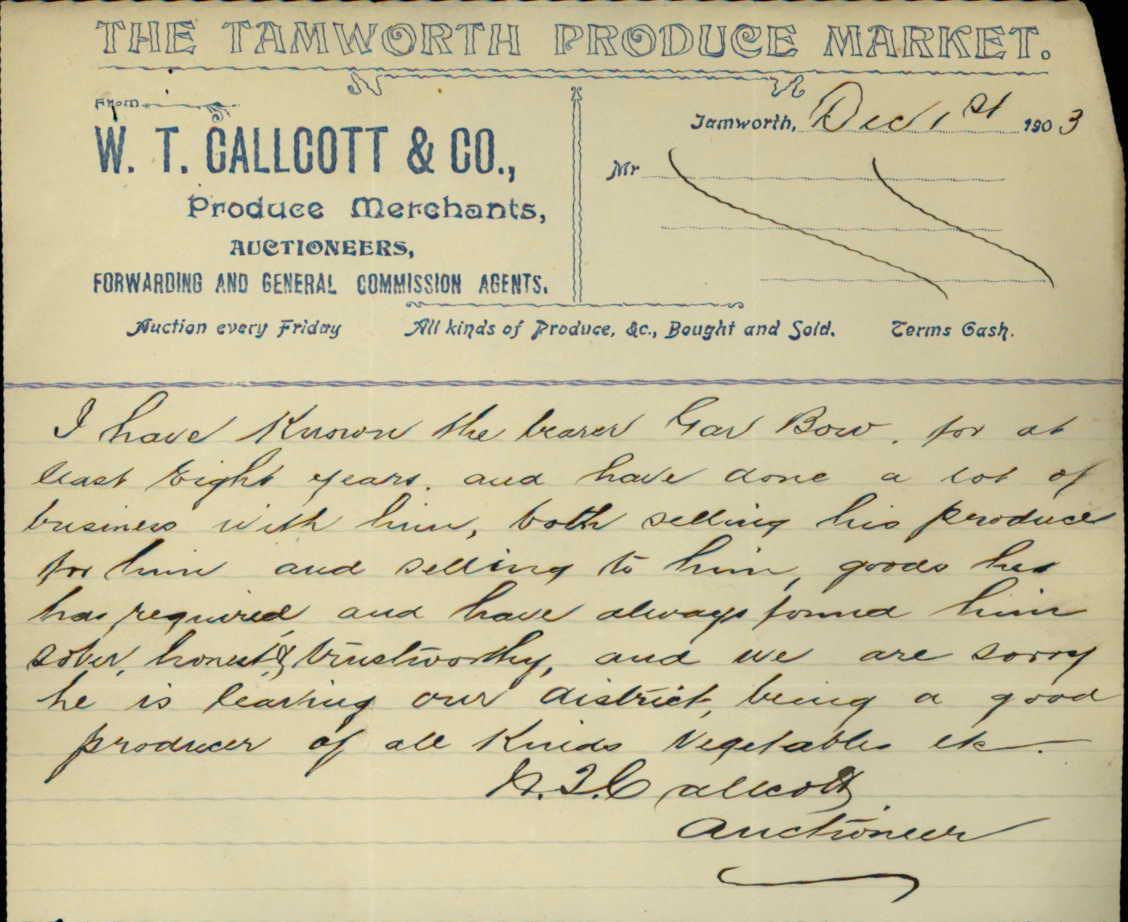 THE TAMWORTH PRODUCE MARKET.
From
W. T. CALLCOTT & CO.,
Produce Merchants,
AUCTIONEERS,
FORWARDING AND GENERAL COMMISSION AGENTS.
Tamworth, Dec 1st 1903
Mr
Auction every Friday All kinds of Produce, &c., Bought and Sold. Terms Cash.
I have Known the bearer Gar Bow. for at
least Eight years. and have done a lot of
business with him, both selling his produce
for him and selling to him, goods he
has required, and have always found him
sober, honest, & trustworthy, and we are sorry
he is leaving our district, being a good
producer of all Kinds Vegetables etc.
W. T. Callcott
Auctioneer